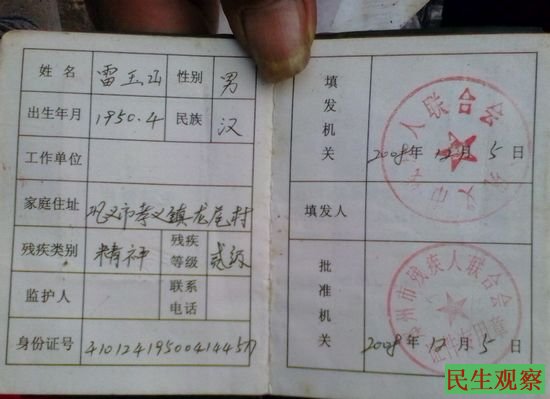 姓名 雷玉 性别 男
出生年月 1950.4 民族 汉
工作单位
家庭住址 巩义市孝义镇龙尾村
残疾类别 精神 残疾等级 贰级
监护人 联系电话
身份证号 410124195004144517
填发机关
义市 人联合会
2008年 12月 5日
填发人
批准机关
州市残疾人联合会
证件专用章
2008年 12月 5日
民生观察